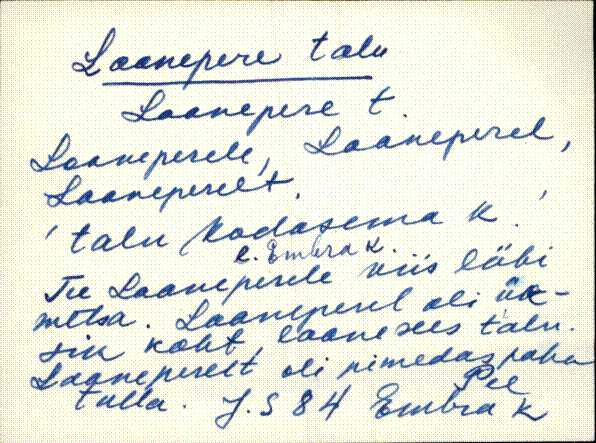 Laanepere talu
Laanepere t.
Laaneperele, Laaneperel,
Laaneperelt.
'talu Kodasema k.'
e. Embra k.
Tee Laaneperele viis läbi
metsa. Laaneperel oli ük-
sik koht, laane sees talu.
Laaneperelt oli pimedas paha
tulla. J.S 84 Embra k
Pil